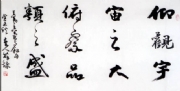 仰觀宇
宙之大
俯察品
類之盛